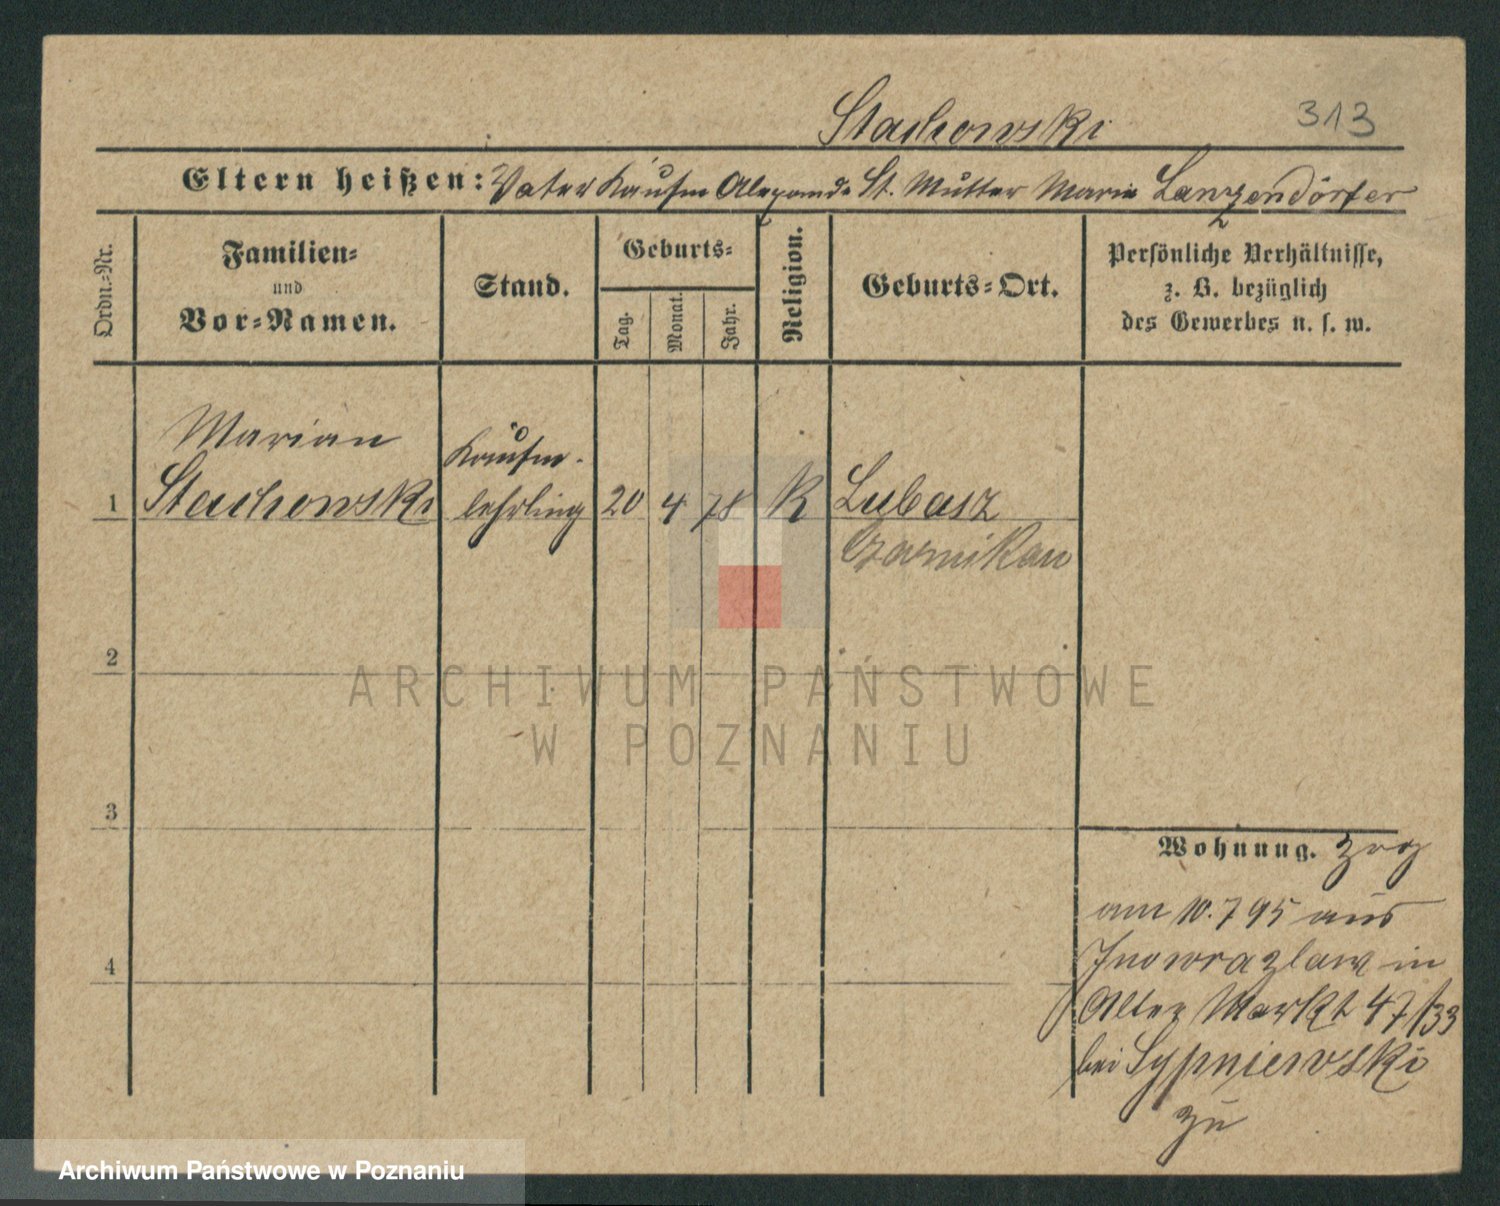 Stachowski 313
Eltern heißen: Vater Kaufm Alexander St. Mutter Marie Lanzendörfer
Ordn.-Nr.
Familien-
und
Vor-Namen.
Stand.
Geburts-
Tag.
Monat.
Jahr.
Religion.
Geburts-Ort.
Persönliche Verhältnisse,
z. B. bezüglich
des Gewerbes u. s. w.
Marian
Kaufm.
1 Stachowski lehrling 20 4 78 K Lubasz
Czarnikau
2
ARCHIWUM PAŃSTWOWE
W POZNANIU
3
Wohnung. zog
am 10.7 95 aus
Inowrazlaw in
4
Alter Markt 47/33
bei Sypniewski
zu
Archiwum Państwowe w Poznaniu